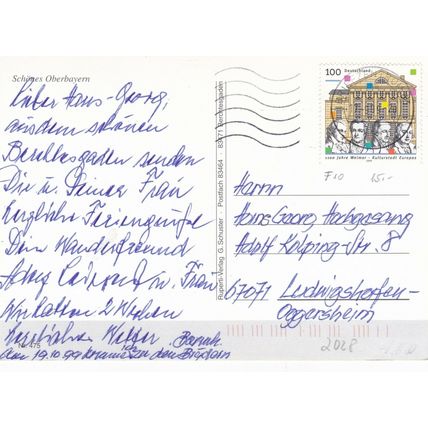 Schönes Oberbayern
Lieber Hans-Georg,
aus dem schönen
Berchtesgaden senden
Dir u. Deiner Frau
herzliche Feriengrüße
Dein Wanderfreund
Adolf u. Frau
Wir hatten 2 Wochen
herrliches Wetter.
Am 19.10.99
Nr. 475
Ruperti-Verlag G. Schuster Postfach 83464 83471 Berchtesgaden
100 Deutschland
1100 Jahre Weimar - Kulturstadt Europas
F10 15,-
Herrn
Hans Georg Hochgesang
Adolf Kolping-Str. 8
67071 Ludwigshafen-
Oggersheim
2028